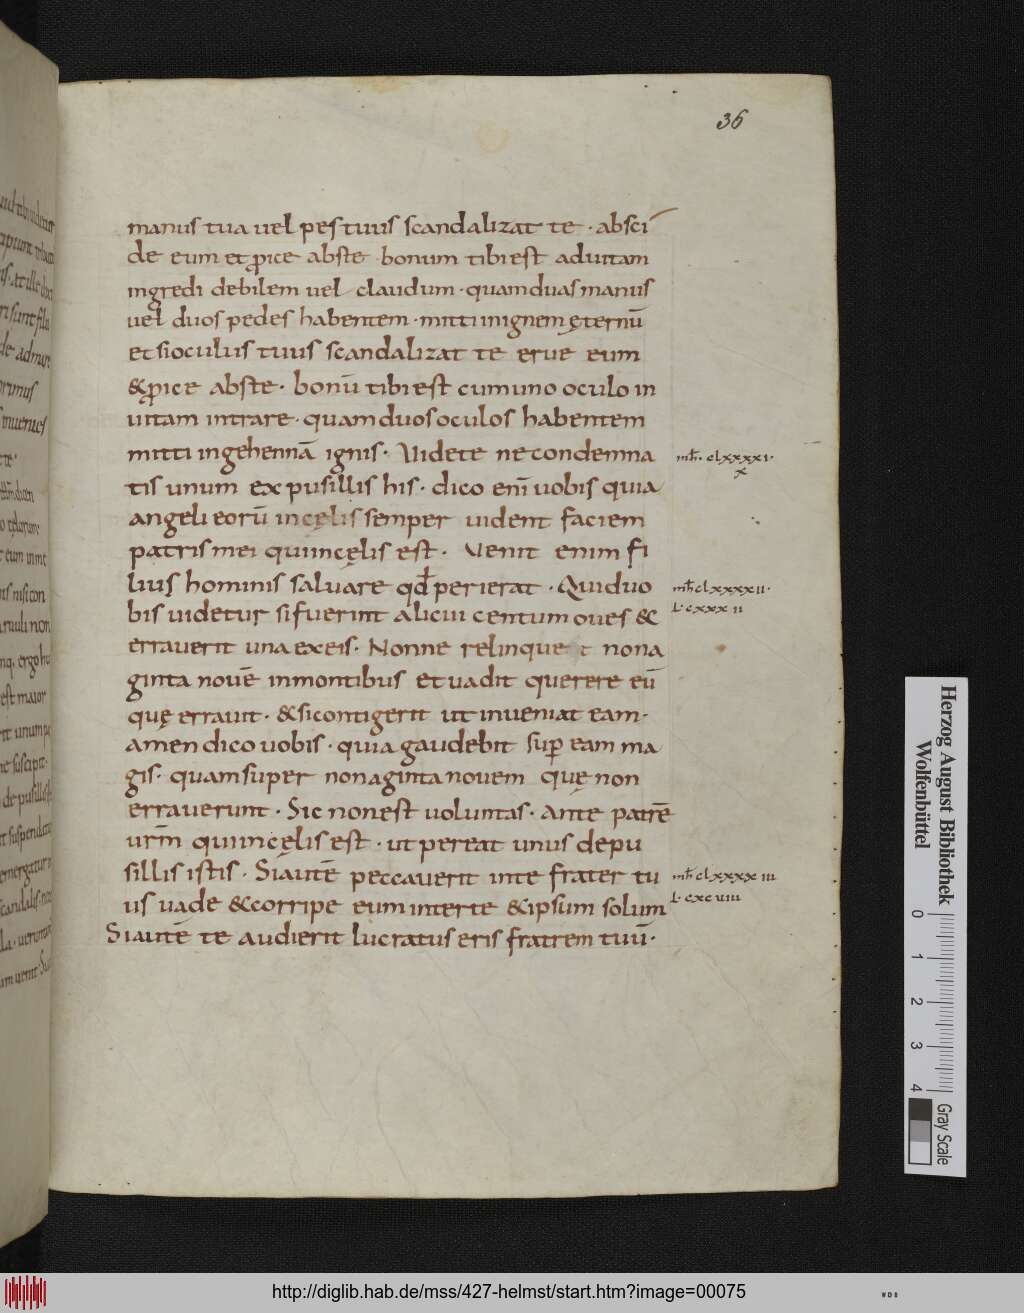 36
manus tua uel pes tuus scandalizat te · absci
de eum et ꝓice abste · bonum tibi est ad uitam
ingredi debilem uel claudum · quam duas manus
uel duos pedes habentem · mitti in ignem ęternū
et si oculus tuus scandalizat te erue eum
& ꝓice abste · bonū tibi est cum uno oculo in
uitam intrare · quam duos oculos habentem
mitti in gehennā ignis · Videte ne condemna
tis unum ex pusillis his · dico eni̅ uobis quia
angeli eorū in cęlis semper uident faciem
patris mei qui in cęlis est · Venit enim fi
lius hominis saluare qd̅ perierat · Quid uo
bis uidetur si fuerint alicui centum oues &
errauerit una ex eis · Nonne relinquet nona
ginta nouē in montibus et uadit querere eū
quę errauit · & si contigerit ut inueniat eam ·
amen dico uobis · quia gaudebit suꝑ eam ma
gis · quam super nonaginta nouem quę non
errauerunt · Sic non est uoluntas · ante patrē
ur̅m qui in cęlis est · ut pereat unus de pu
sillis istis · Si autē peccauerit in te frater tu
us uade & corripe eum inter te & ipsum solum
Si autē te audierit lucratus eris fratrem tuū ·
mt̅ · clxxxxı ·
x
mt̅ clxxxxıı ·
L · cxxxıı
mt̅ clxxxxııı
L · cxcuııı
Herzog August Bibliothek
Wolfenbüttel
0 1 2 3 4
Gray Scale
http://diglib.hab.de/mss/427-helmst/start.htm?image=00075